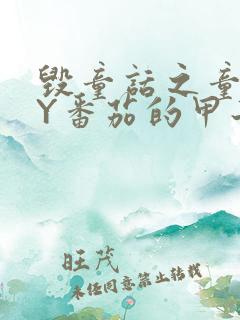 毁童话之童
Y番茄的甲
旺茂
未经同意禁止转载